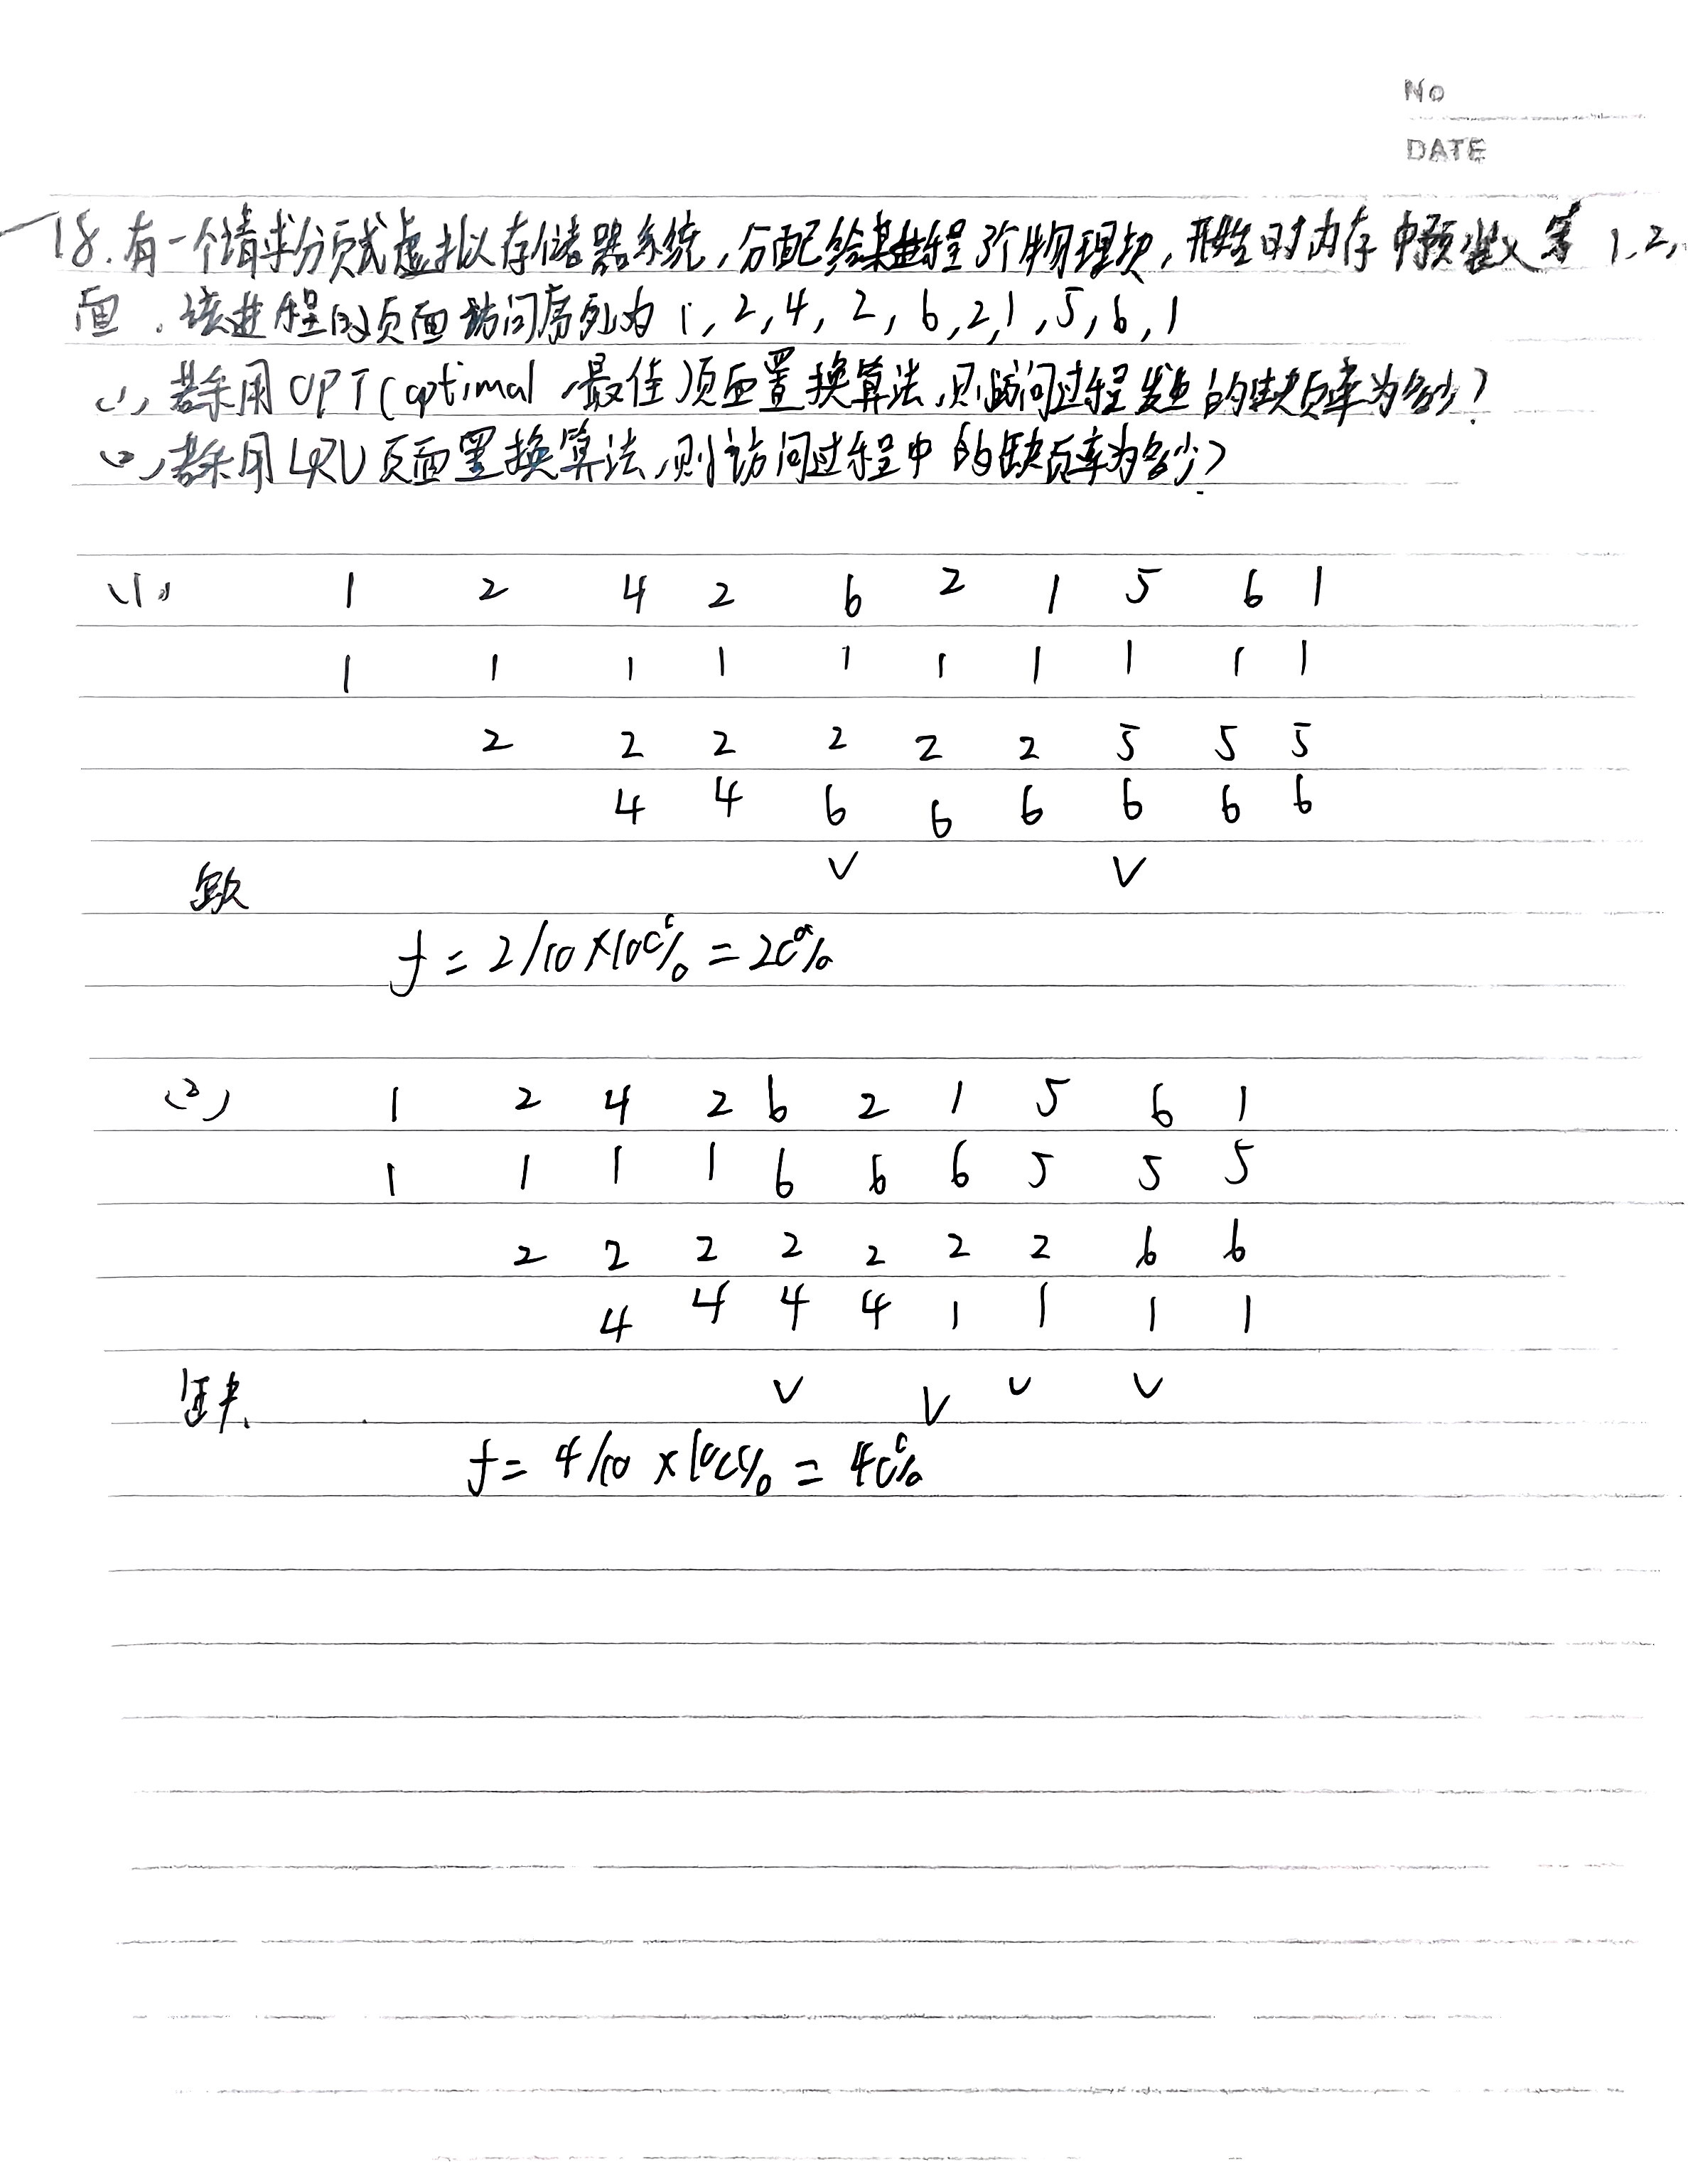 No
DATE
18.有一个请求分页式虚拟存储器系统,分配给某进程3个物理块,开始时内存中预装入第1,2,
面.该进程的页面访问序列为1,2,4,2,6,2,1,5,6,1
(1),若采用OPT(optimal,最佳)页面置换算法,则访问过程发生的缺页率为多少?
(2),若采用LRU页面置换算法,则访问过程中的缺页率为多少?
(1) 1 2 4 2 6 2 1 5 6 1
1 1 1 1 1 1 1 1 1 1
2 2 2 2 2 2 5 5 5
4 4 6 6 6 6 6 6
缺 V V
f = 2/10×100% = 20%
(2) 1 2 4 2 6 2 1 5 6 1
1 1 1 1 6 6 6 5 5 5
2 2 2 2 2 2 2 6 6
4 4 4 4 1 1 1 1
缺 V V V V
f = 4/10 × 100% = 40%